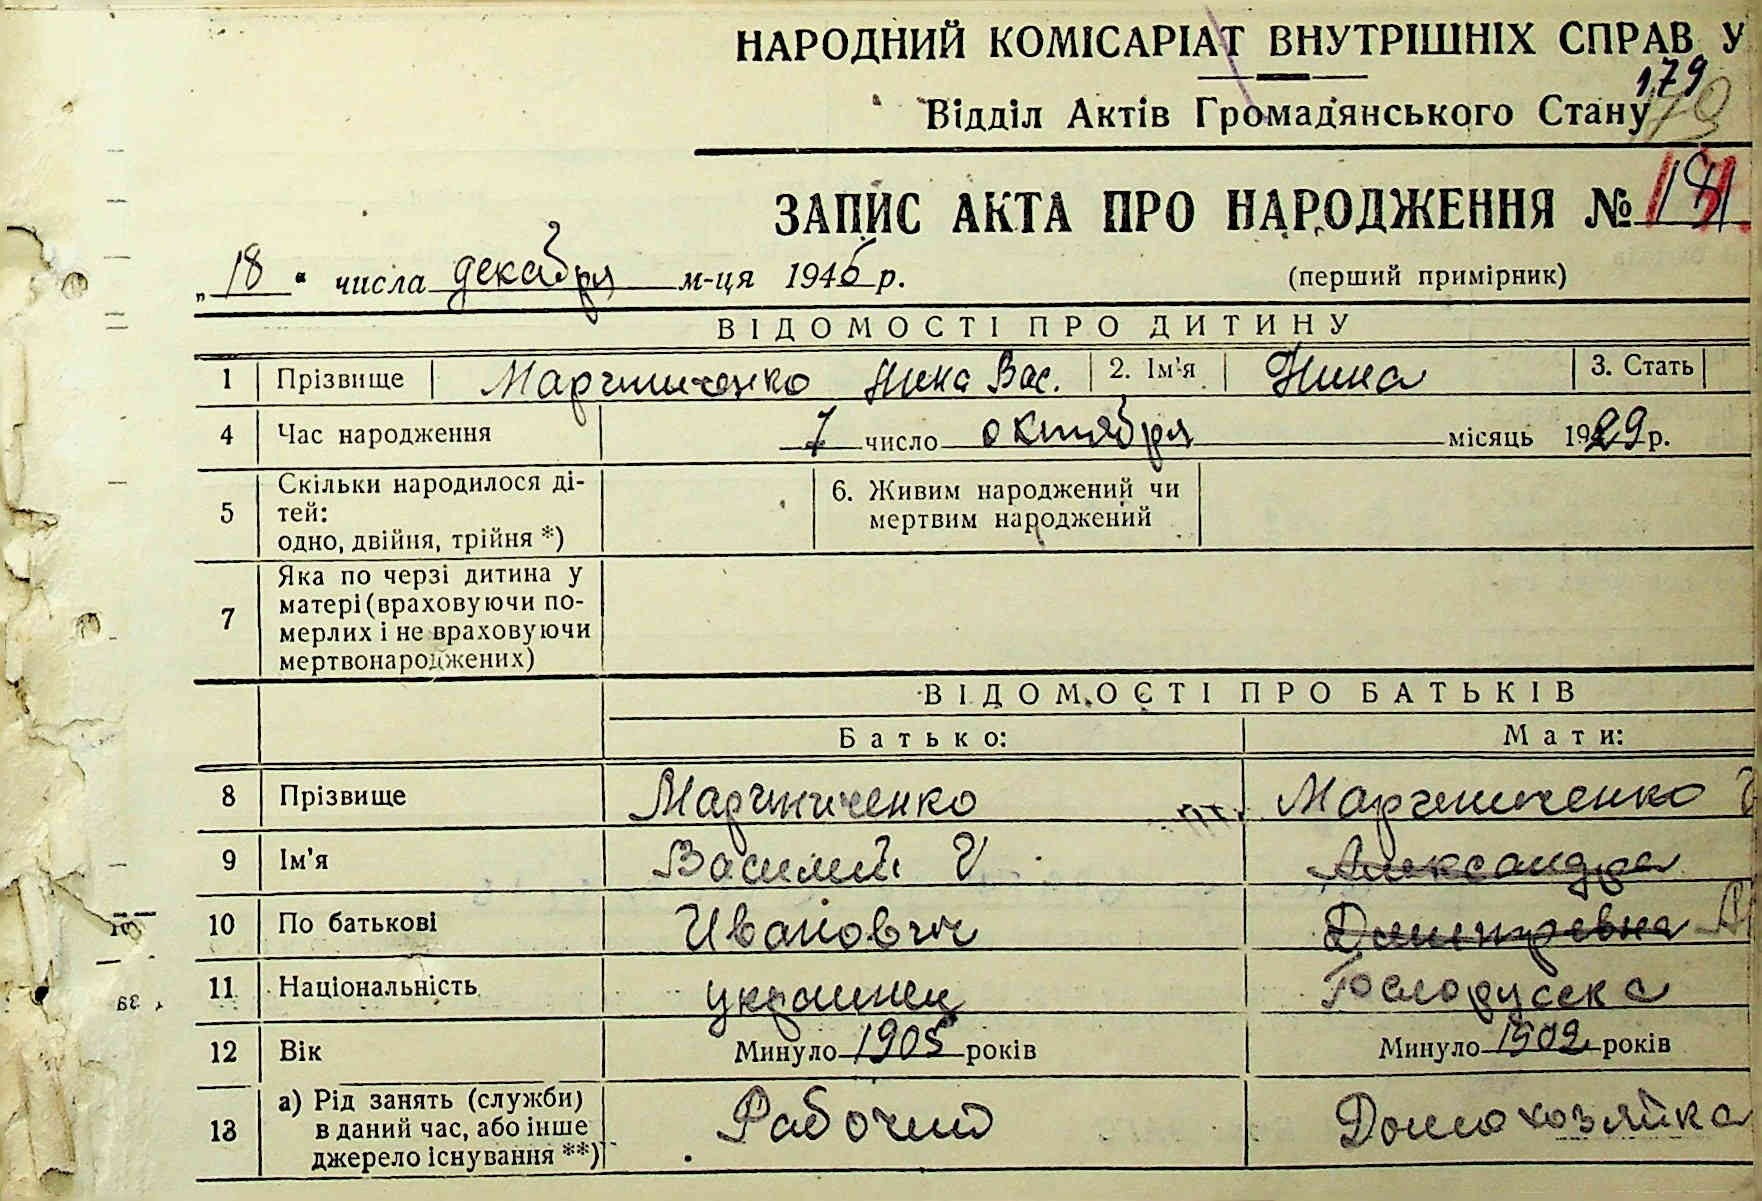 НАРОДНИЙ КОМІСАРІАТ ВНУТРІШНІХ СПРАВ У
179
Відділ Актів Громадянського Стану
ЗАПИС АКТА ПРО НАРОДЖЕННЯ №
„ 18 “ числа декабря м-ця 1945 р. (перший примірник)
ВІДОМОСТІ ПРО ДИТИНУ
1 Прізвище Мартиненко Нина Вас. 2. Ім'я Нина 3. Стать
4 Час народження 7 число октября місяць 1929 р.
5 Скільки народилося ді-
тей:
одно, двійня, трійня *)
6. Живим народжений чи
мертвим народжений
7 Яка по черзі дитина у
матері (враховуючи по-
мерлих і не враховуючи
мертвонароджених)
ВІДОМОСТІ ПРО БАТЬКІВ
Батько: Мати:
8 Прізвище Мартиненко Мартиненко
9 Ім'я Василий Александра
10 По батькові Иванович Дмитревна
11 Національність украинец
12 Вік Минуло 1905 років Минуло 1902 років
13 а) Рід занять (служби)
в даний час, або інше
джерело існування **)
Рабочий Домохозяйка